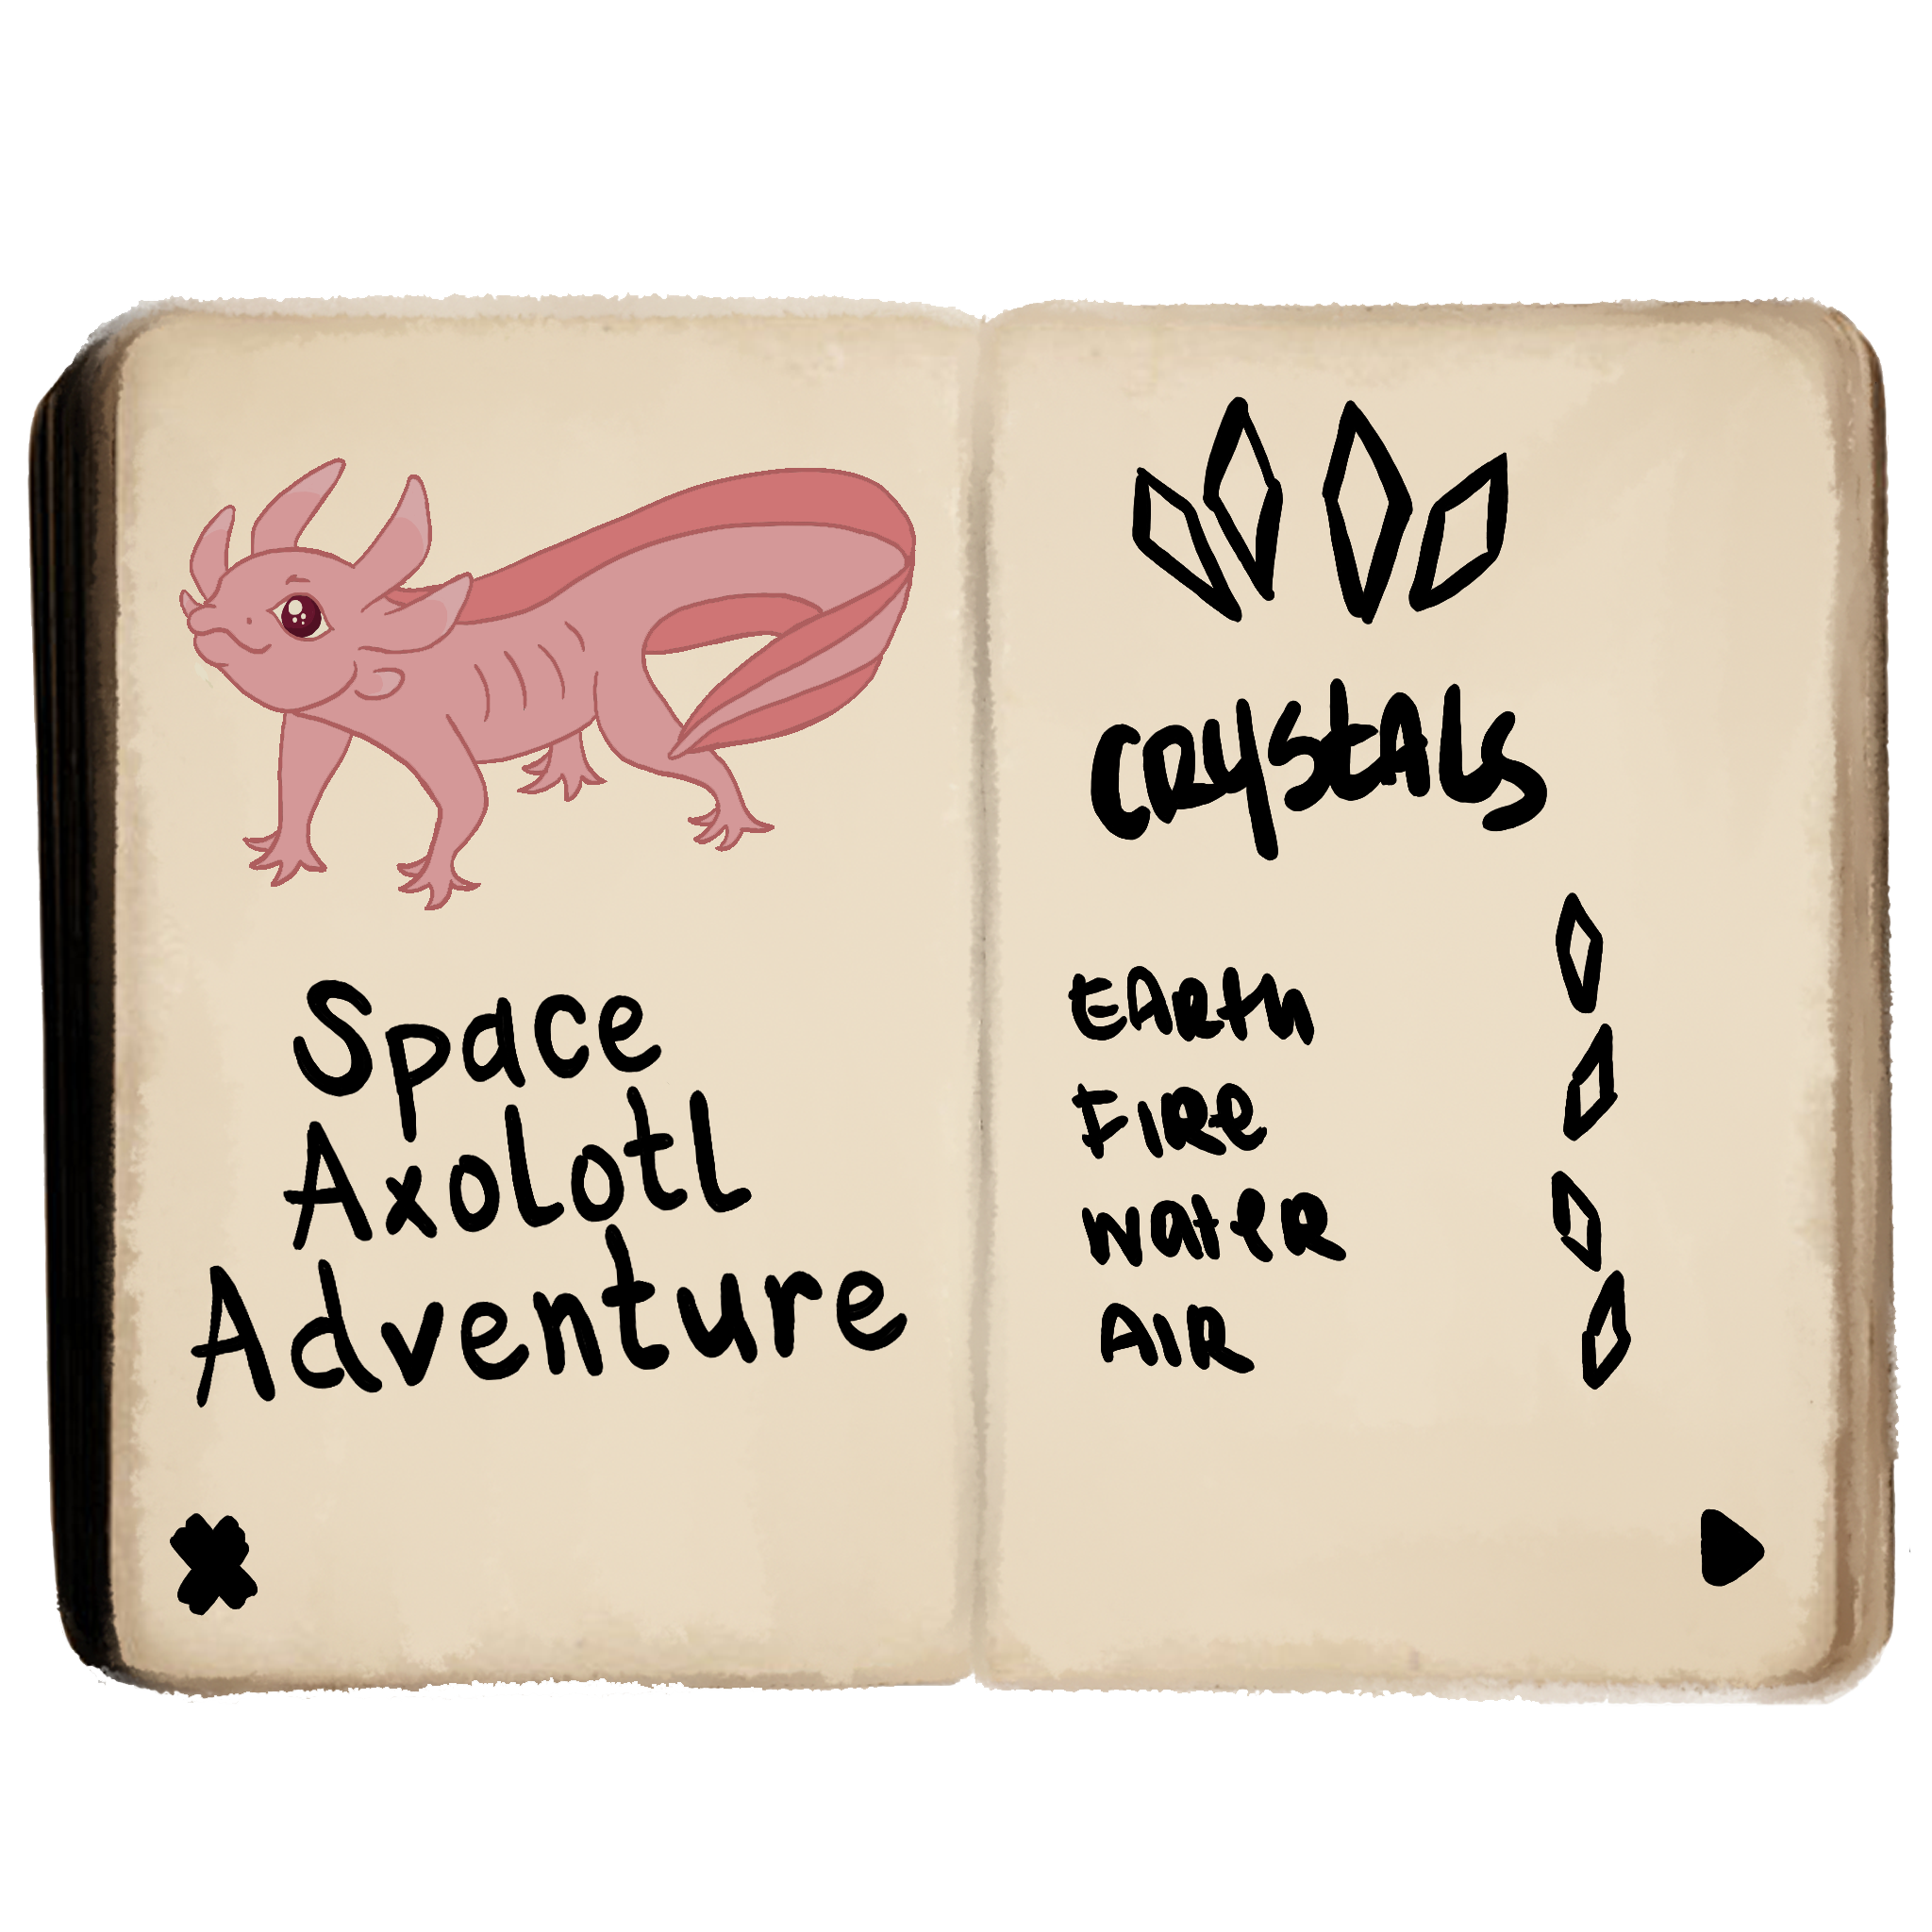 Space
Axolotl
Adventure
CRystAls
EARth
FIRe
WateR
AIR